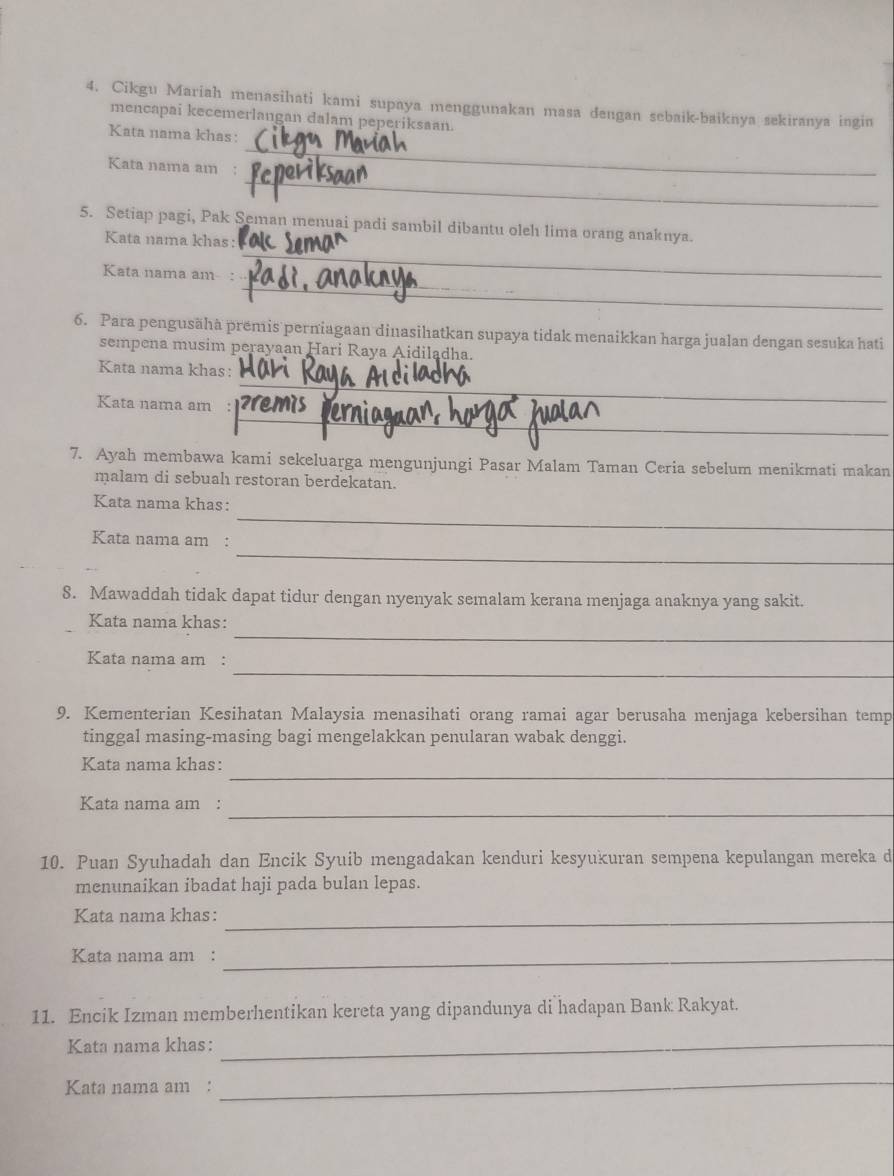 4. Cikgu Mariah menasihati kami supaya menggunakan masa dengan sebaik-baiknya sekiranya ingin
mencapai kecemerlangan dalam peperiksaan.
Kata nama khas: Cikgu Mariah
Kata nama am : Peperiksaan
5. Setiap pagi, Pak Seman menuai padi sambil dibantu oleh lima orang anaknya.
Kata nama khas: Pak Seman
Kata nama am : Padi, anaknya
6. Para pengusaha premis perniagaan dinasihatkan supaya tidak menaikkan harga jualan dengan sesuka hati
sempena musim perayaan Hari Raya Aidiladha.
Kata nama khas: Hari Raya Aidiladha
Kata nama am : premis perniagaan, harga jualan
7. Ayah membawa kami sekeluarga mengunjungi Pasar Malam Taman Ceria sebelum menikmati makan
malam di sebuah restoran berdekatan.
Kata nama khas:
Kata nama am :
8. Mawaddah tidak dapat tidur dengan nyenyak semalam kerana menjaga anaknya yang sakit.
Kata nama khas:
Kata nama am :
9. Kementerian Kesihatan Malaysia menasihati orang ramai agar berusaha menjaga kebersihan temp
tinggal masing-masing bagi mengelakkan penularan wabak denggi.
Kata nama khas:
Kata nama am :
10. Puan Syuhadah dan Encik Syuib mengadakan kenduri kesyukuran sempena kepulangan mereka d
menunaikan ibadat haji pada bulan lepas.
Kata nama khas:
Kata nama am :
11. Encik Izman memberhentikan kereta yang dipandunya di hadapan Bank Rakyat.
Kata nama khas:
Kata nama am :